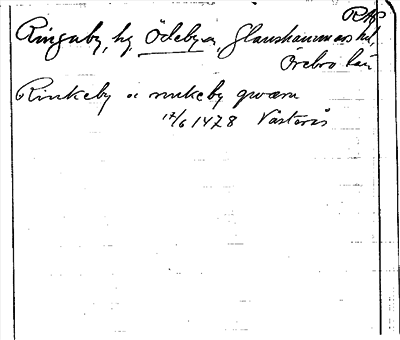 RAP
Ringaby, hg Ödeby sn, Glanshammars hd,
Örebro län
Rinkeby oc rinkeby qwærn
17/6 1478 Västerås